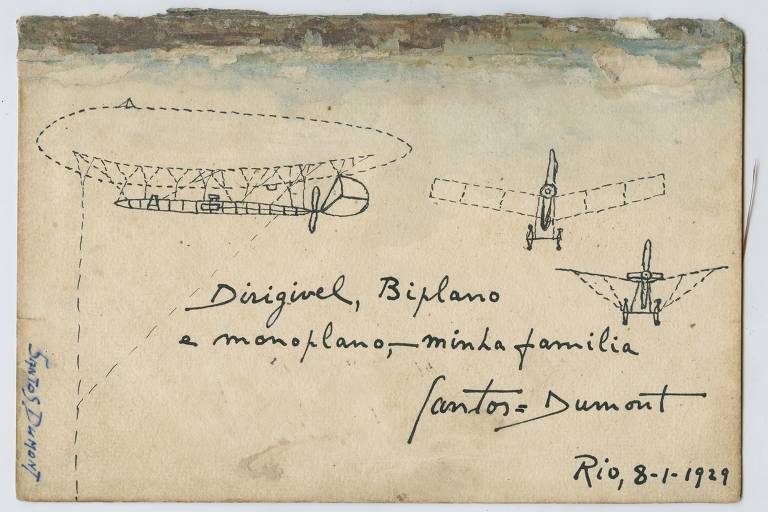 Dirigivel, Biplano
e monoplano, — minha familia
Santos=Dumont
Rio, 8-1-1929
SANTOS DUMONT